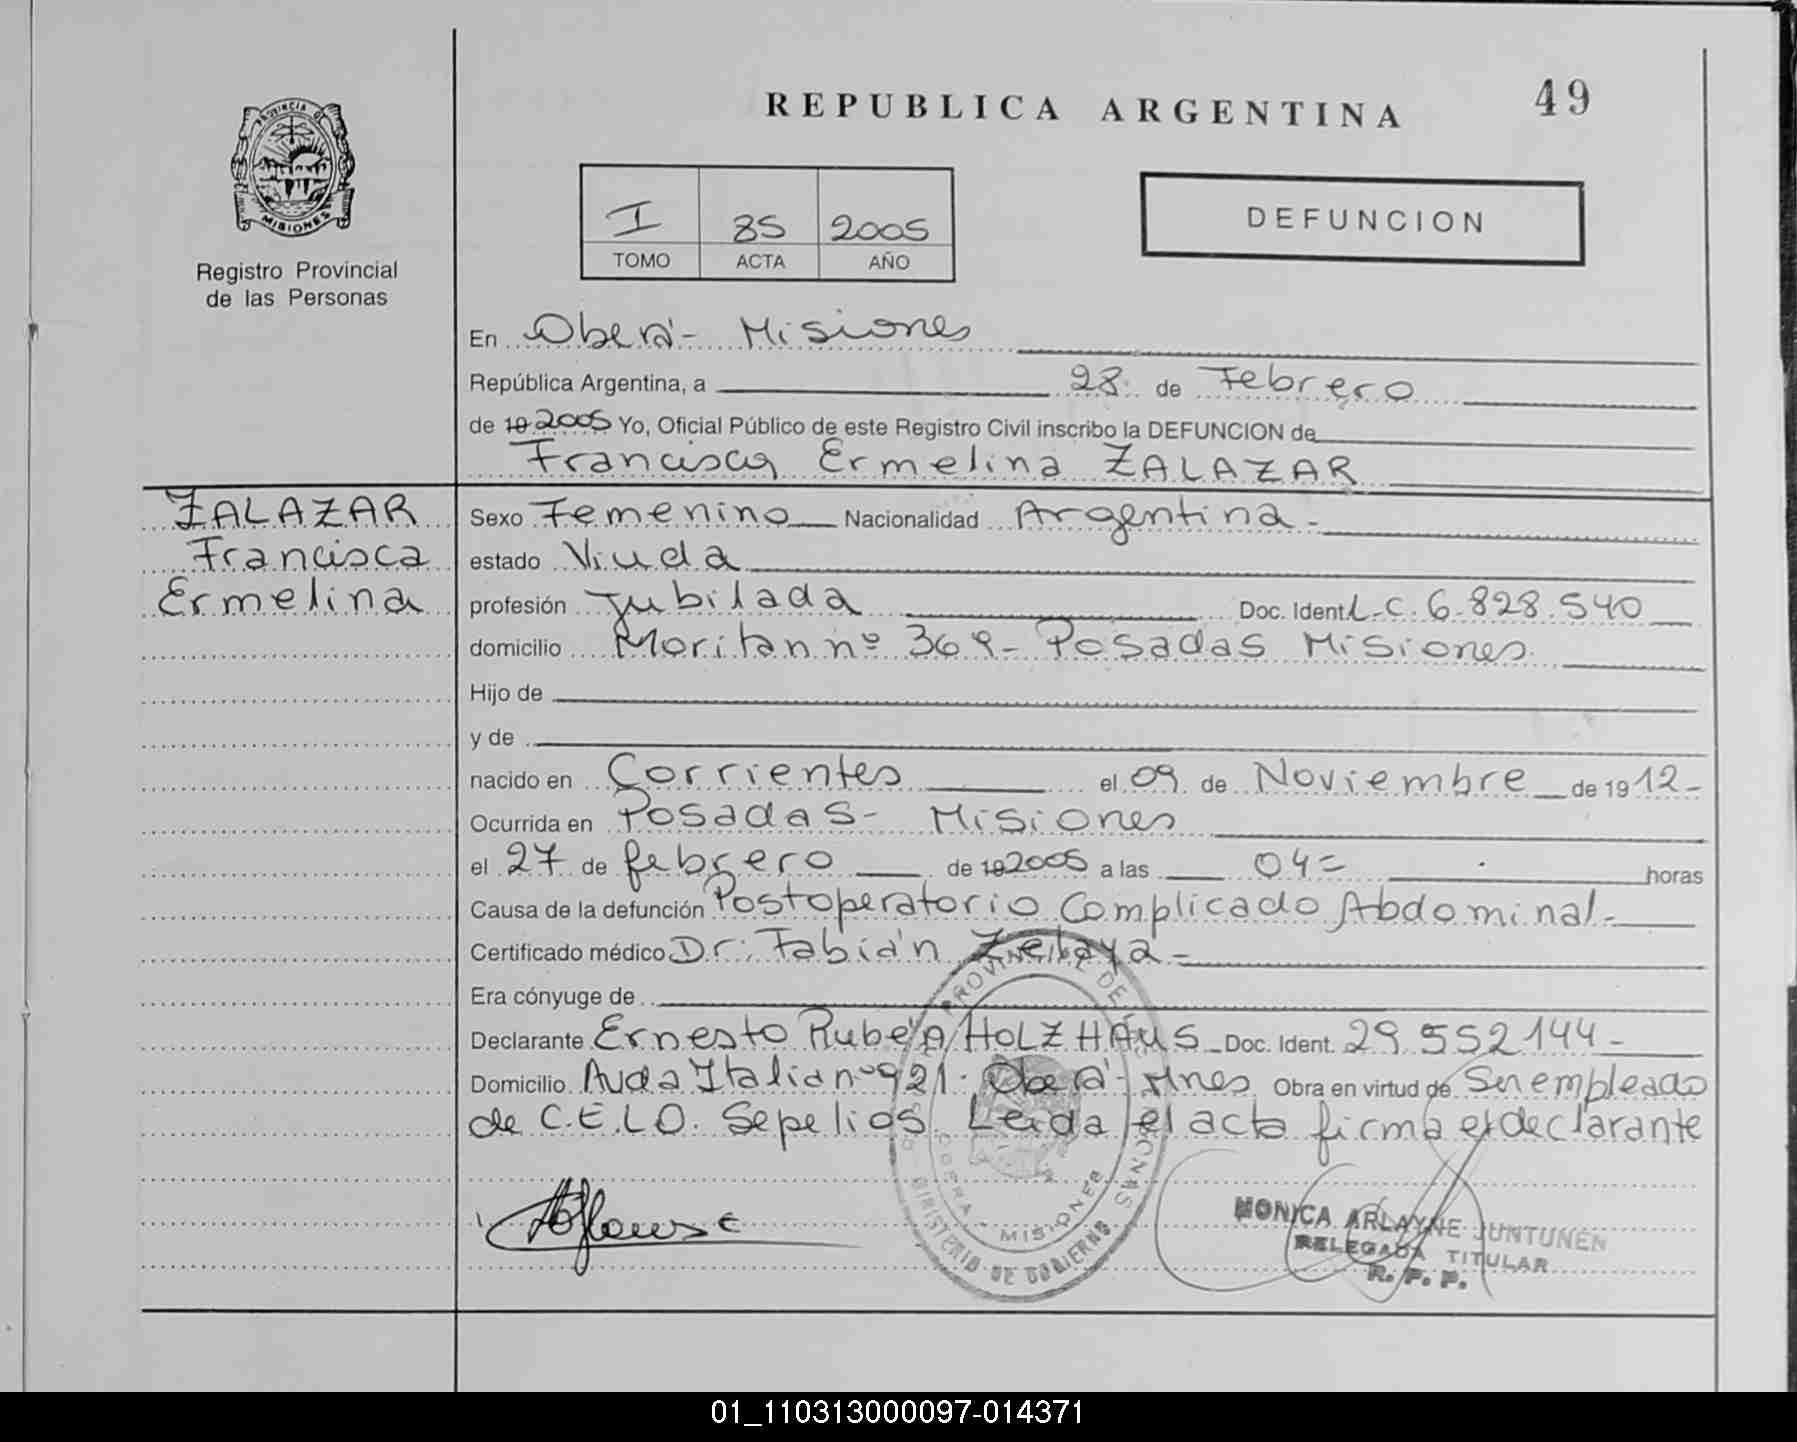 REPUBLICA ARGENTINA
49
PROVINCIA DE
MISIONES
Registro Provincial
de las Personas
I 85 2005
TOMO ACTA AÑO
DEFUNCION
En Oberá - Misiones
República Argentina, a 28 de Febrero
de 19 2005 Yo, Oficial Público de este Registro Civil inscribo la DEFUNCION de
Francisca Ermelina ZALAZAR
ZALAZAR
Francisca
Ermelina
Sexo Femenino Nacionalidad Argentina -
estado Viuda
profesión Jubilada Doc. Ident. L.C. 6.828.540
domicilio Moritan nº 369 - Posadas Misiones
Hijo de
y de
nacido en Corrientes el 09 de Noviembre de 1912 -
Ocurrida en Posadas - Misiones
el 27 de febrero de 19 2005 a las 04 = horas
Causa de la defunción Postoperatorio Complicado Abdominal -
Certificado médico Dr: Fabián Zelaya -
Era cónyuge de
Declarante Ernesto Rubén HOLZHAUS - Doc. Ident. 29.552.144 -
Domicilio Avda Italia nº 921 - Oberá - Mnes Obra en virtud de Ser empleado
de C.E.L.O. Sepelios. Leida el acta firma el declarante
PROVINCIAL DE
MINISTERIO DE GOBIERNO
OBERA - MISIONES
MONICA ARLAYNE JUNTUNEN
DELEGADA TITULAR
R. P. P.
01_110313000097-014371